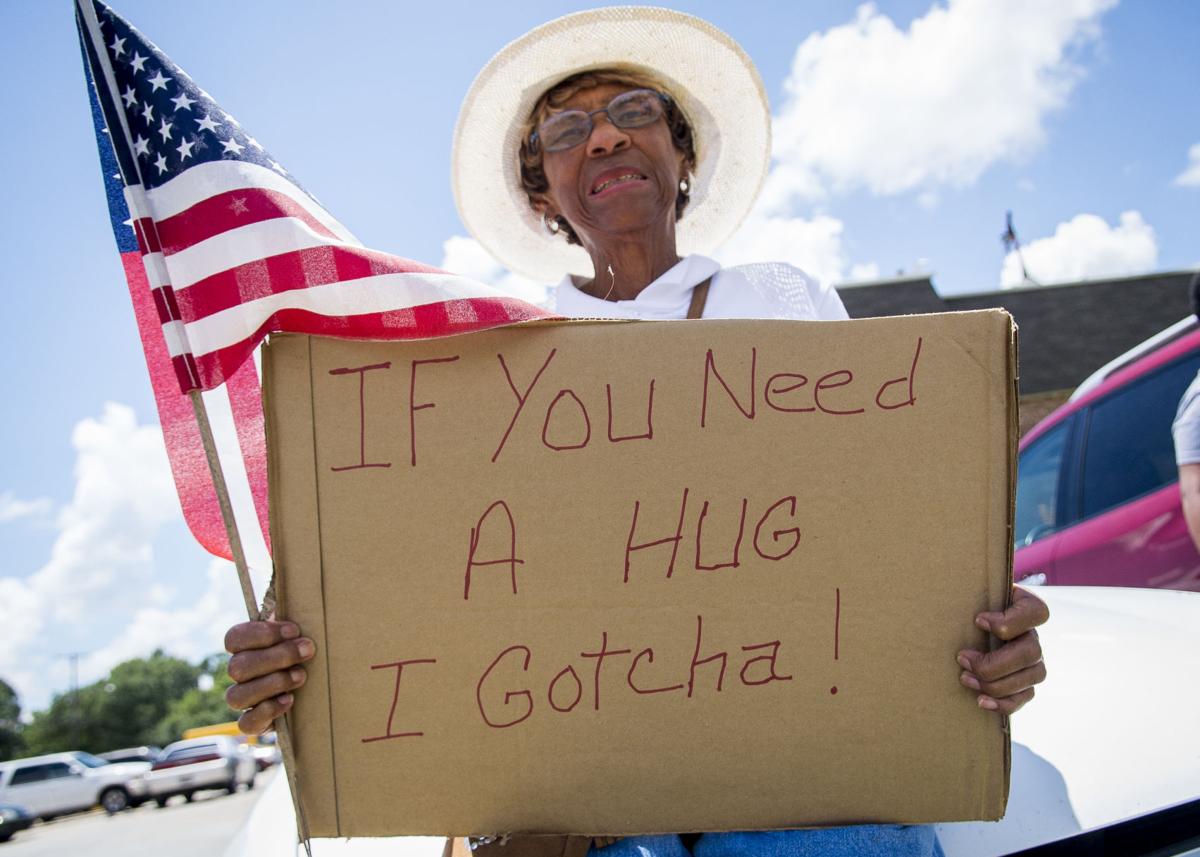 IF You Need
A HUG
I Gotcha!